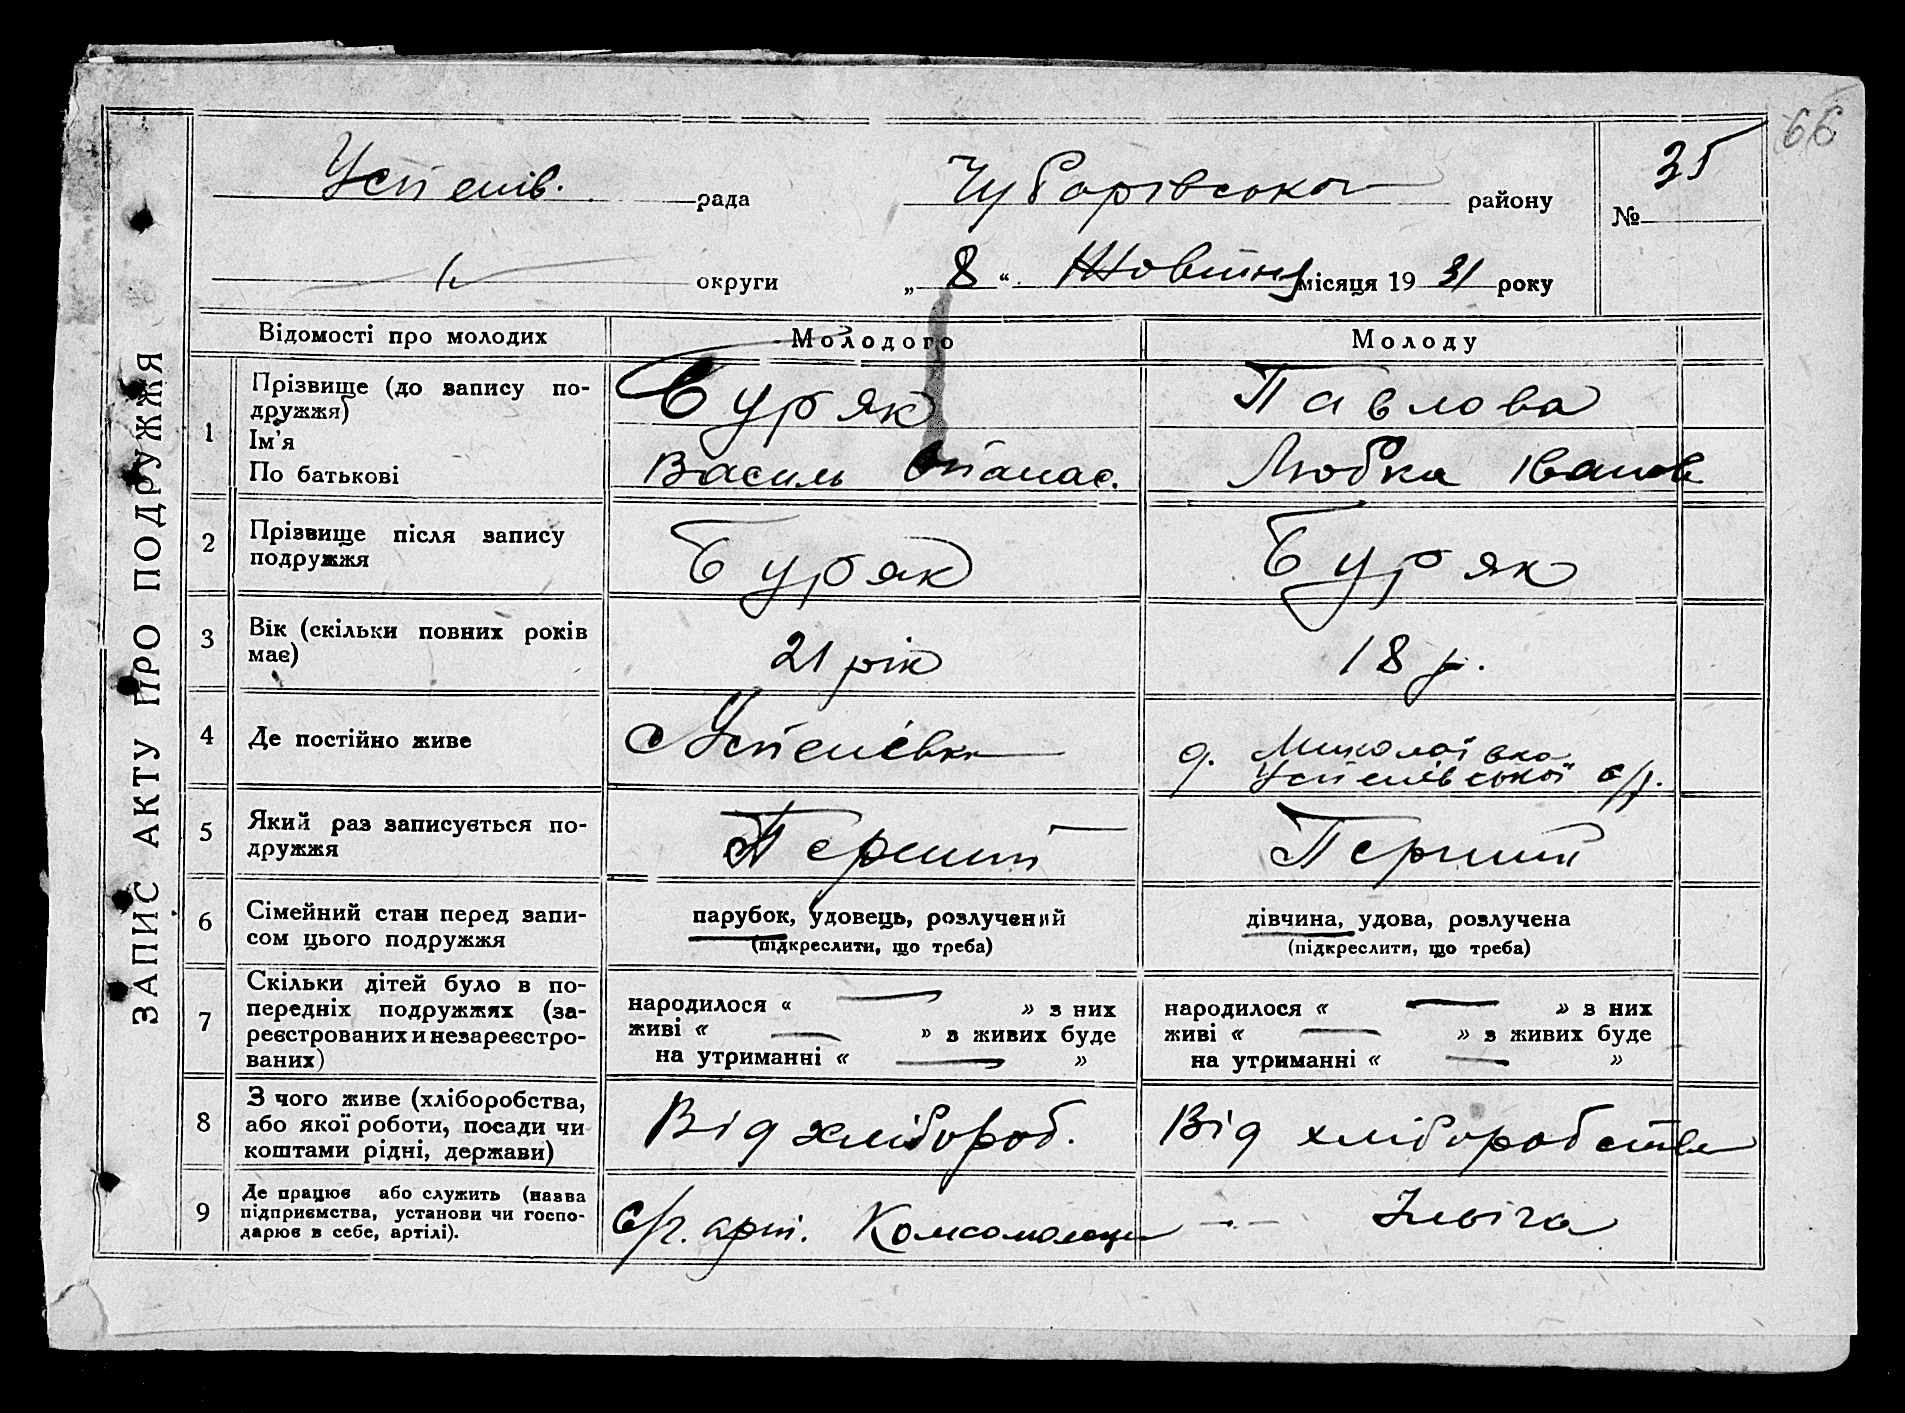 66
Успенів. рада Чубарівського району
№ 35
округи „8“ Жовтня місяця 1931 року
ЗАПИС АКТУ ПРО ПОДРУЖЖЯ
Відомості про молодих Молодого Молоду
1 Прізвище (до запису по-
дружжя) Буряк Павлова
Ім'я
По батькові Василь Опанас. Любка Іванов
2 Прізвище після запису
подружжя Буряк Буряк
3 Вік (скільки повних років
має) 21 рік 18 р.
4 Де постійно живе Успенівка д. Миколаївка
Успенівської с/р.
5 Який раз записується по-
дружжя Перший Перший
6 Сімейний стан перед запи-
сом цього подружжя
парубок, удовець, розлучений
(підкреслити, що треба)
дівчина, удова, розлучена
(підкреслити, що треба)
7 Скільки дітей було в по-
передніх подружжях (за-
реєстрованих и незареєстро-
ваних)
народилося « — » з них
живі « — » з живих буде
на утриманні « — »
народилося « — » з них
живі « — » з живих буде
на утриманні « — »
8 З чого живе (хліборобства,
або якої роботи, посади чи
коштами рідні, держави)
Від хлібороб. Від хліборобства
9 Де працює або служить (назва
підприємства, установи чи госпо-
дарює в себе, артілі).
с/г. арт. Комсомолець -"- Ілліча